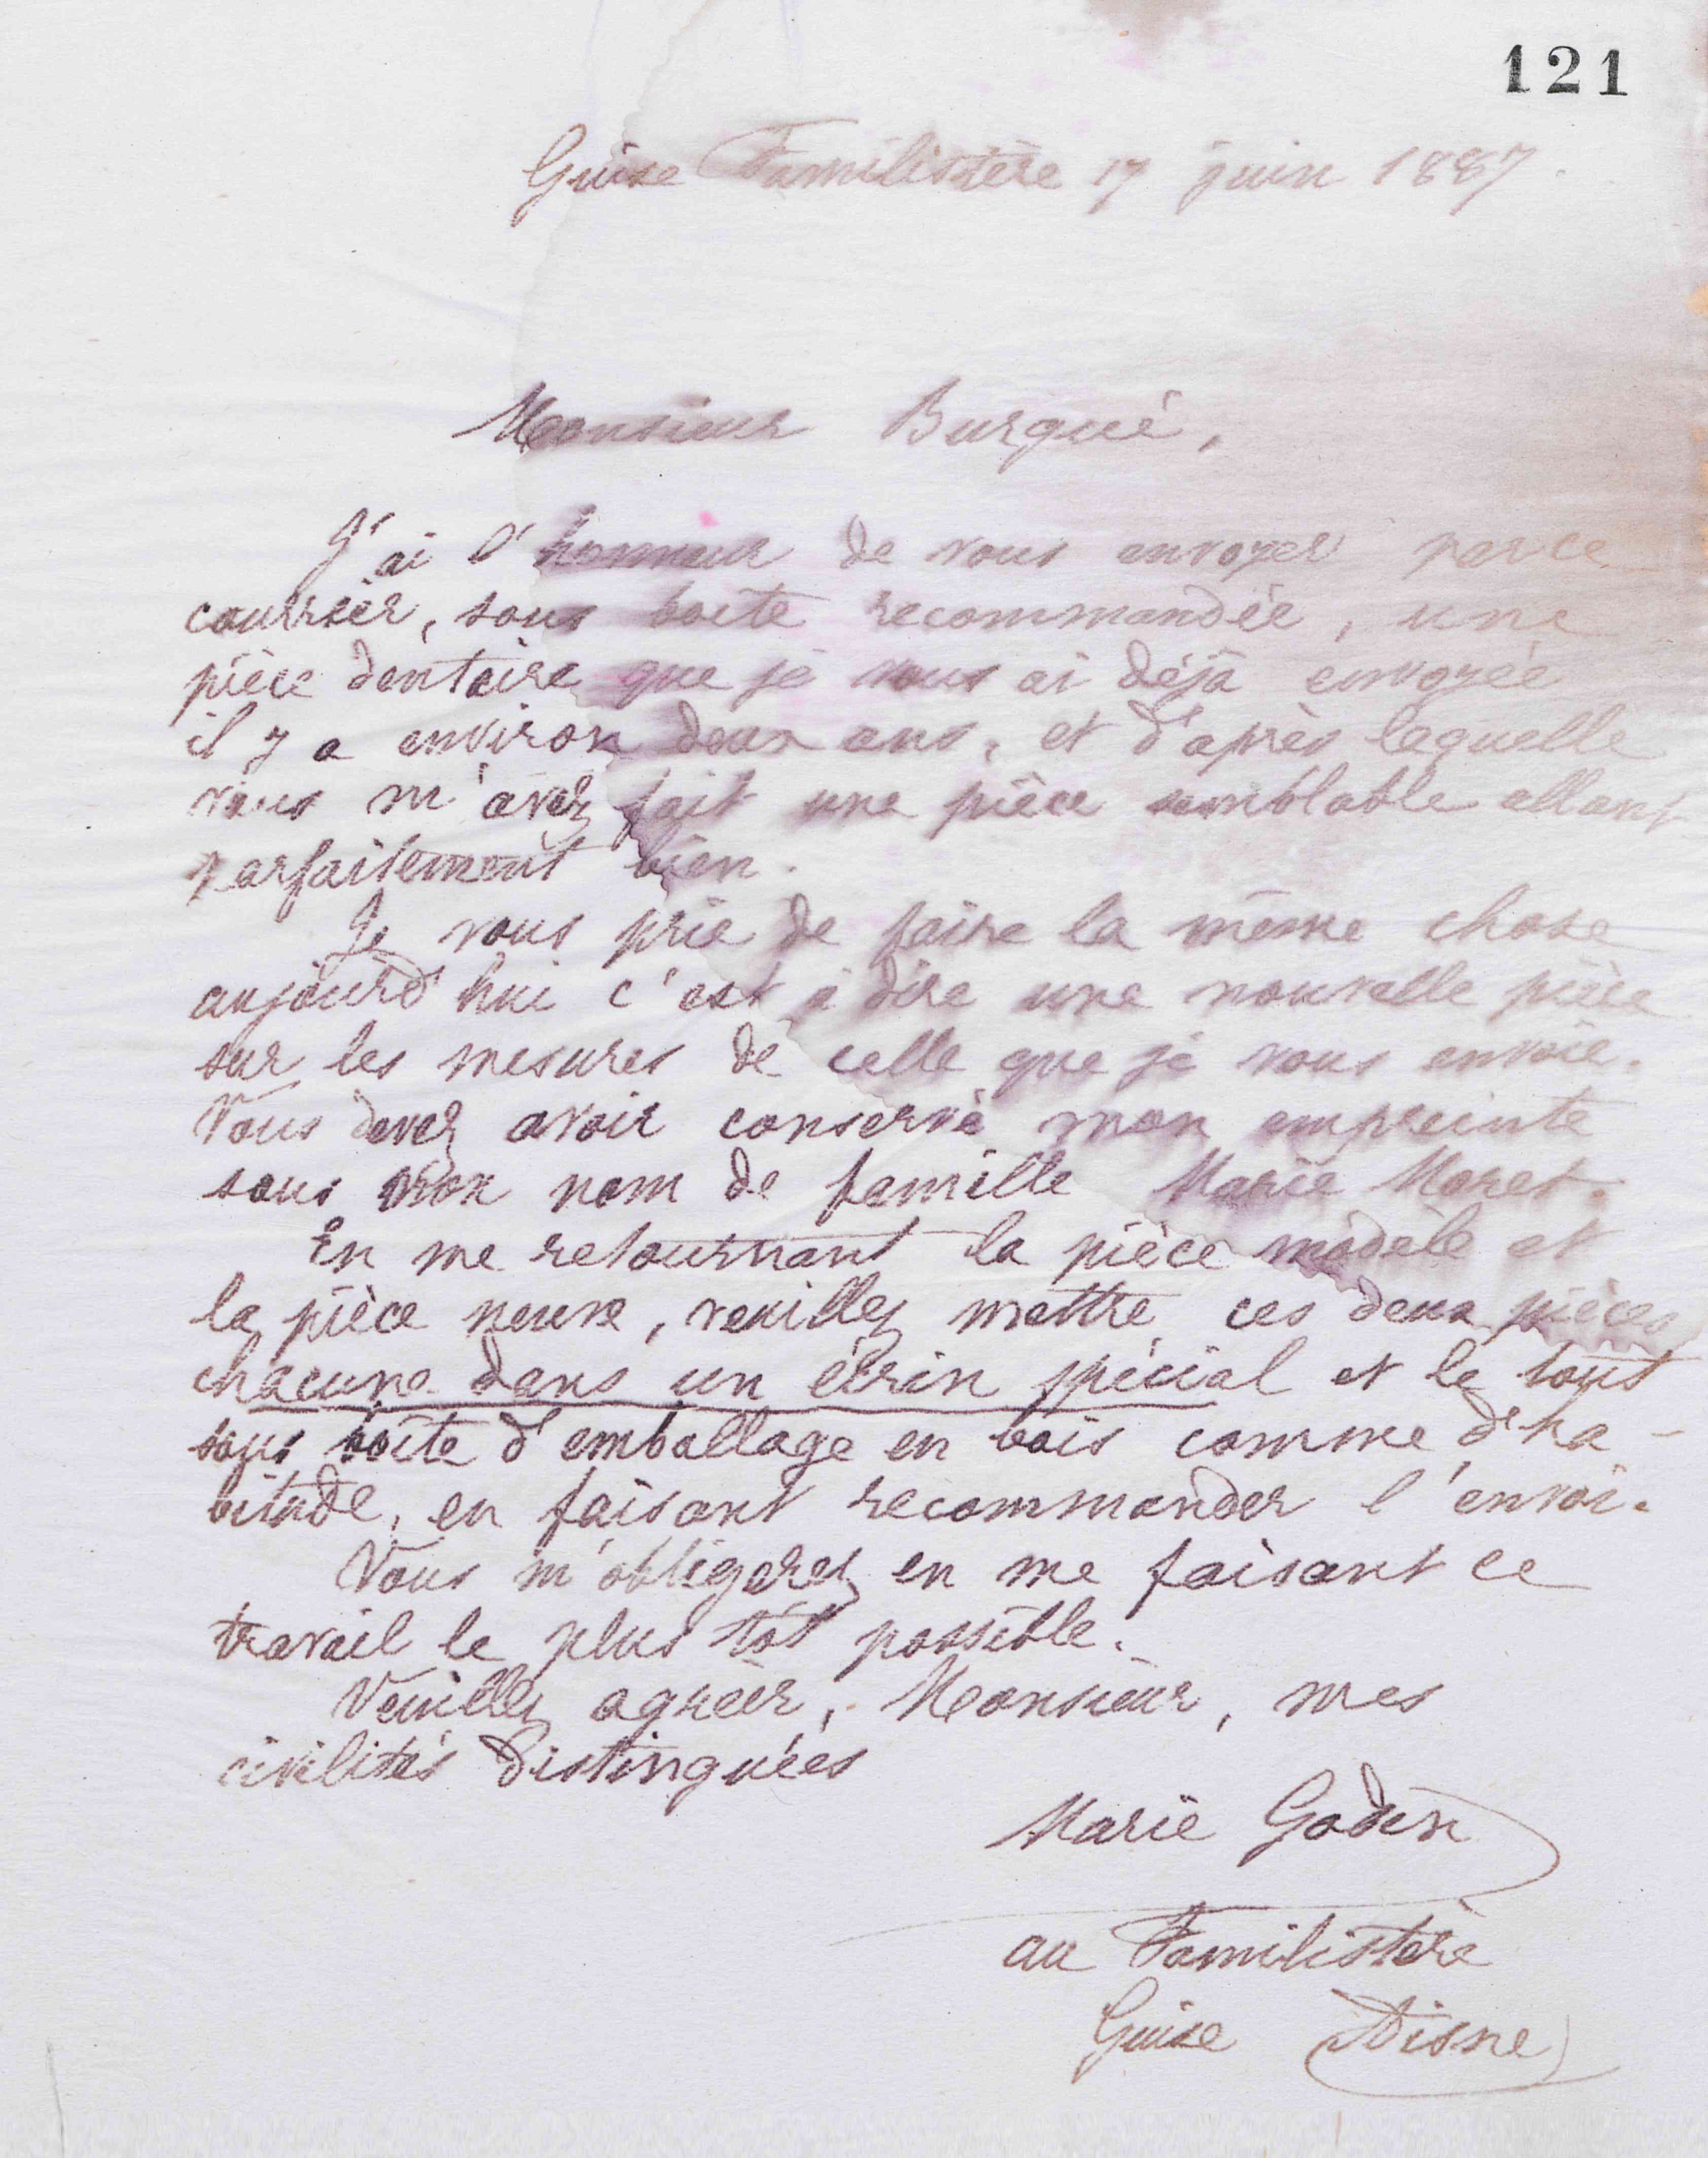 121
Guise Familistère 17 juin 1887.
Monsieur Burqué,
J'ai l'honneur de vous envoyer par ce
courrier, sous boîte recommandée, une
pièce dentaire que je vous ai déjà envoyée
il y a environ deux ans, et d'après laquelle
vous m'avez fait une pièce semblable allant
parfaitement bien.
Je vous prie de faire la même chose
aujourd'hui c'est à dire une nouvelle pièce
sur les mesures de celle que je vous envoie.
Vous devez avoir conservé mon empreinte
sous mon nom de famille Marie Moret.
En me retournant la pièce modèle et
la pièce neuve, veuillez mettre ces deux pièces
chacune dans un écrin spécial et le tout
sous boîte d'emballage en bois comme d'ha-
bitude, en faisant recommander l'envoi.
Vous m'obligerez en me faisant ce
travail le plus tôt possible.
Veuillez agréer, Monsieur, mes
civilités distinguées
Marie Godin
au Familistère
Guise (Aisne)